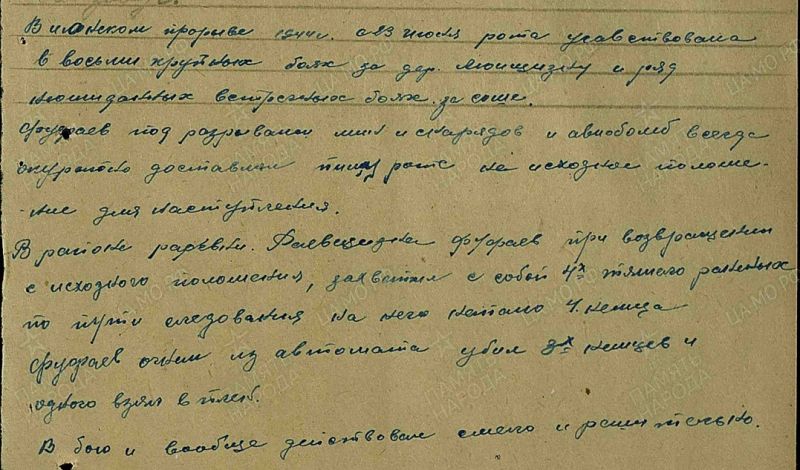 В июнском прорыве 1944г. с 23 июня рота учавствовала
в восьми крупных боях за дер. и ряд
неожиданных встречных боях. за соше.
Фураев под разрывами мин и снарядов и авиобомб всегда
акуратно доставлял пищу роте на исходное положе-
-ние для наступления.
В районе деревни. Фураев при возвращении
с исходного положения, захватил с собой 4х тяжело раненных
по пути следования на него напало 4. немца
Фураев огнем из автомата убил 3х немцев и
одного взял в плен.
В бою и вообще действовал смело и решительно.
ПАМЯТЬ НАРОДА
ЦАМО РФ